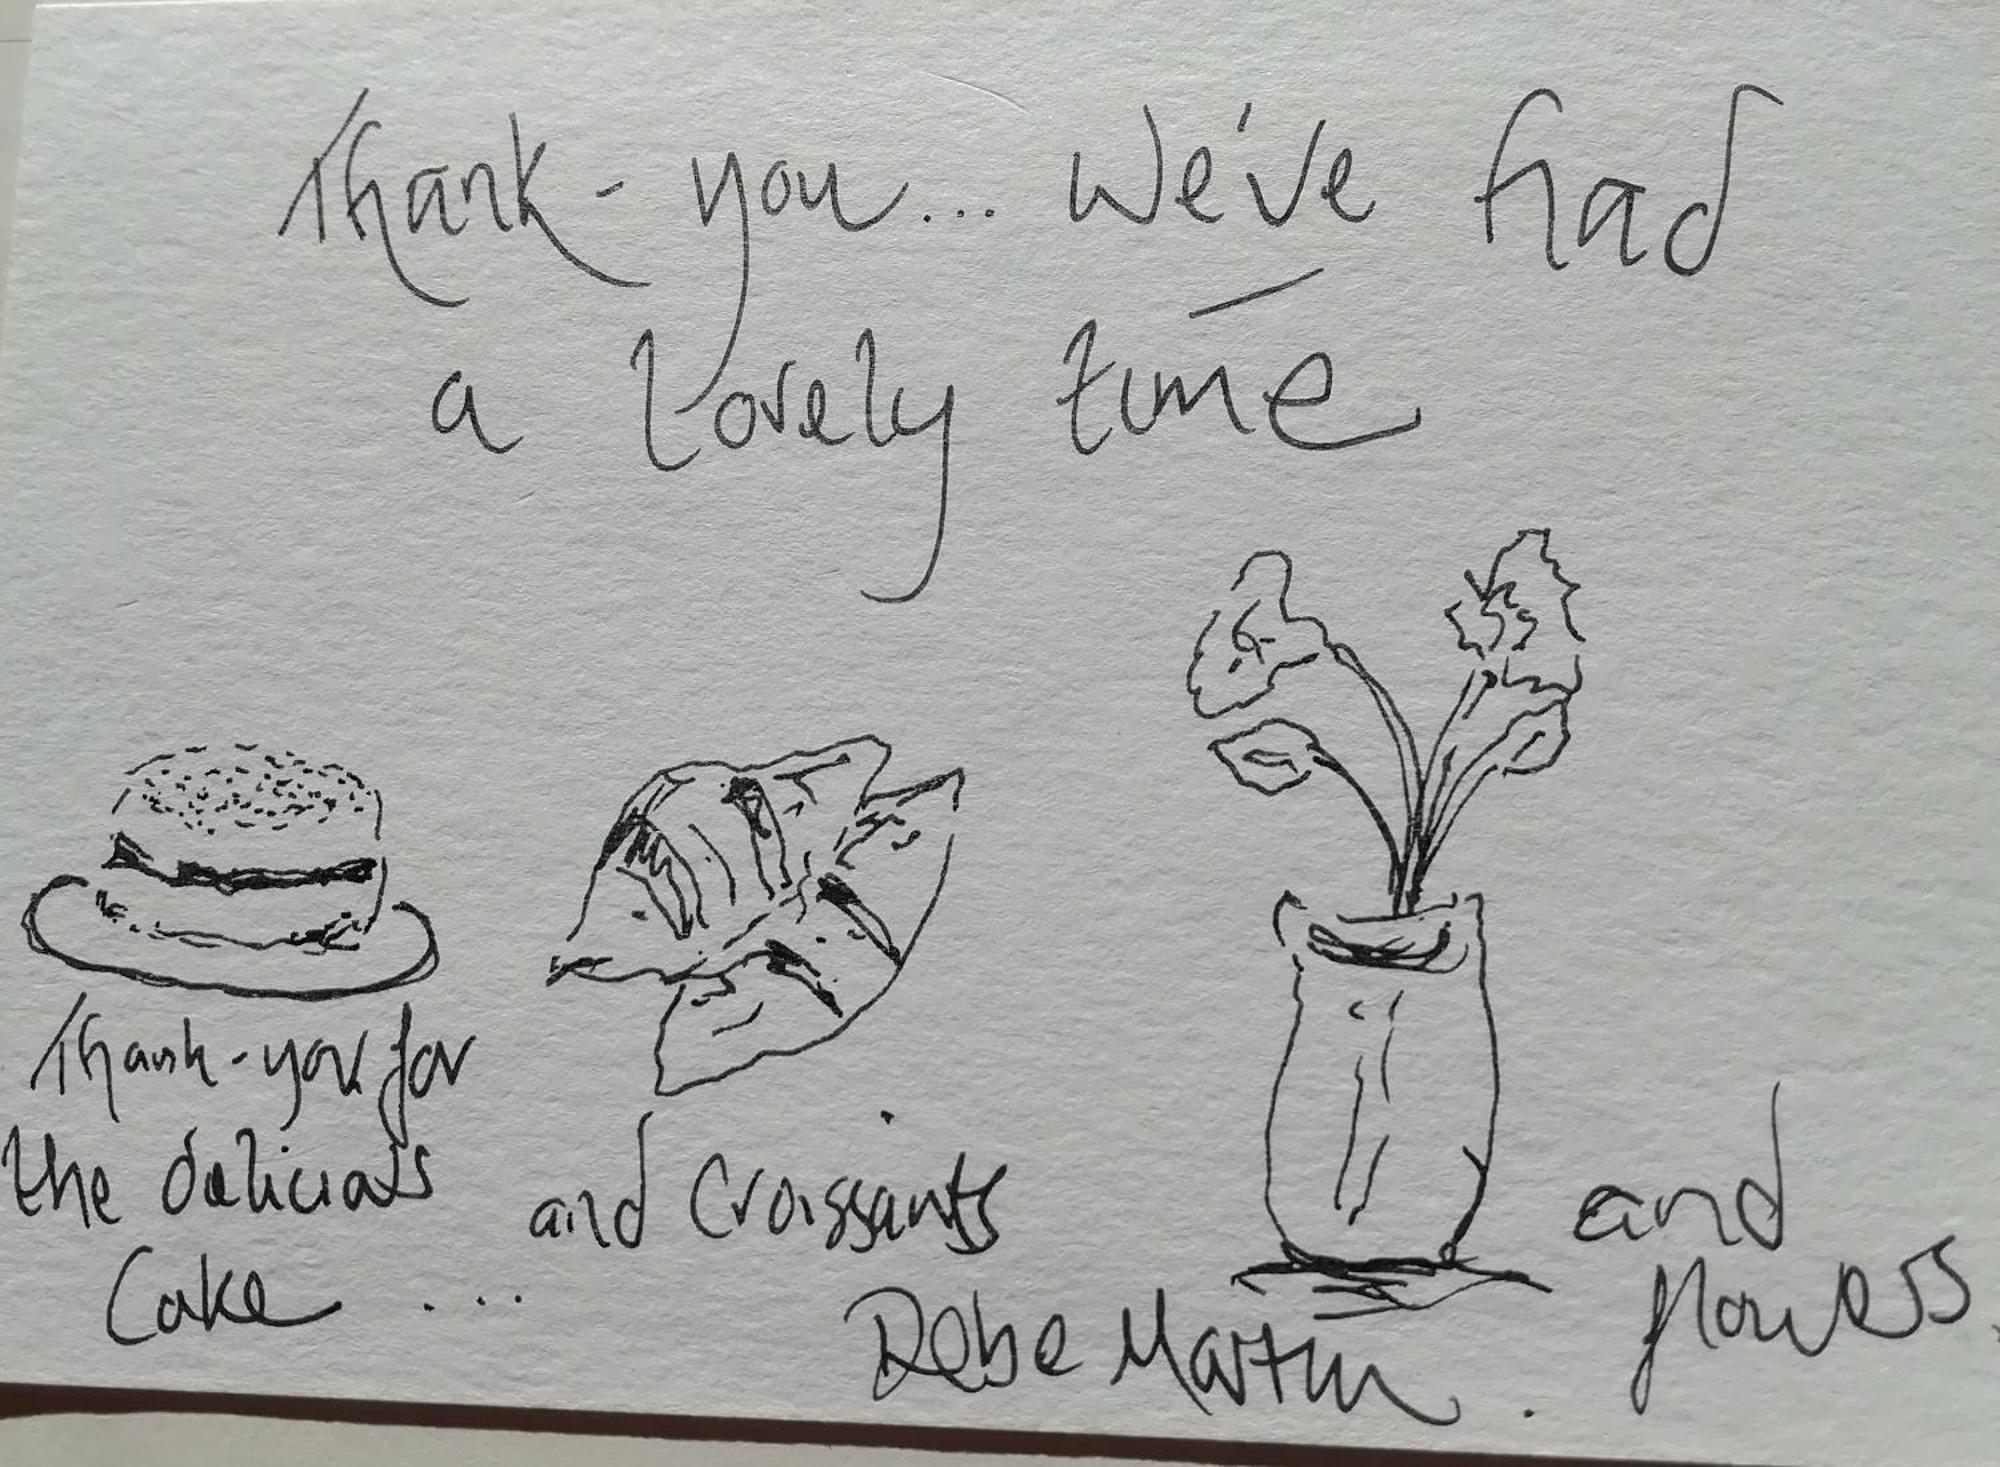 Thank-you... We've had
a lovely time
Thank-you for
the delicious
Cake ....
and Croissants
and
flowers.
Debe Martin.